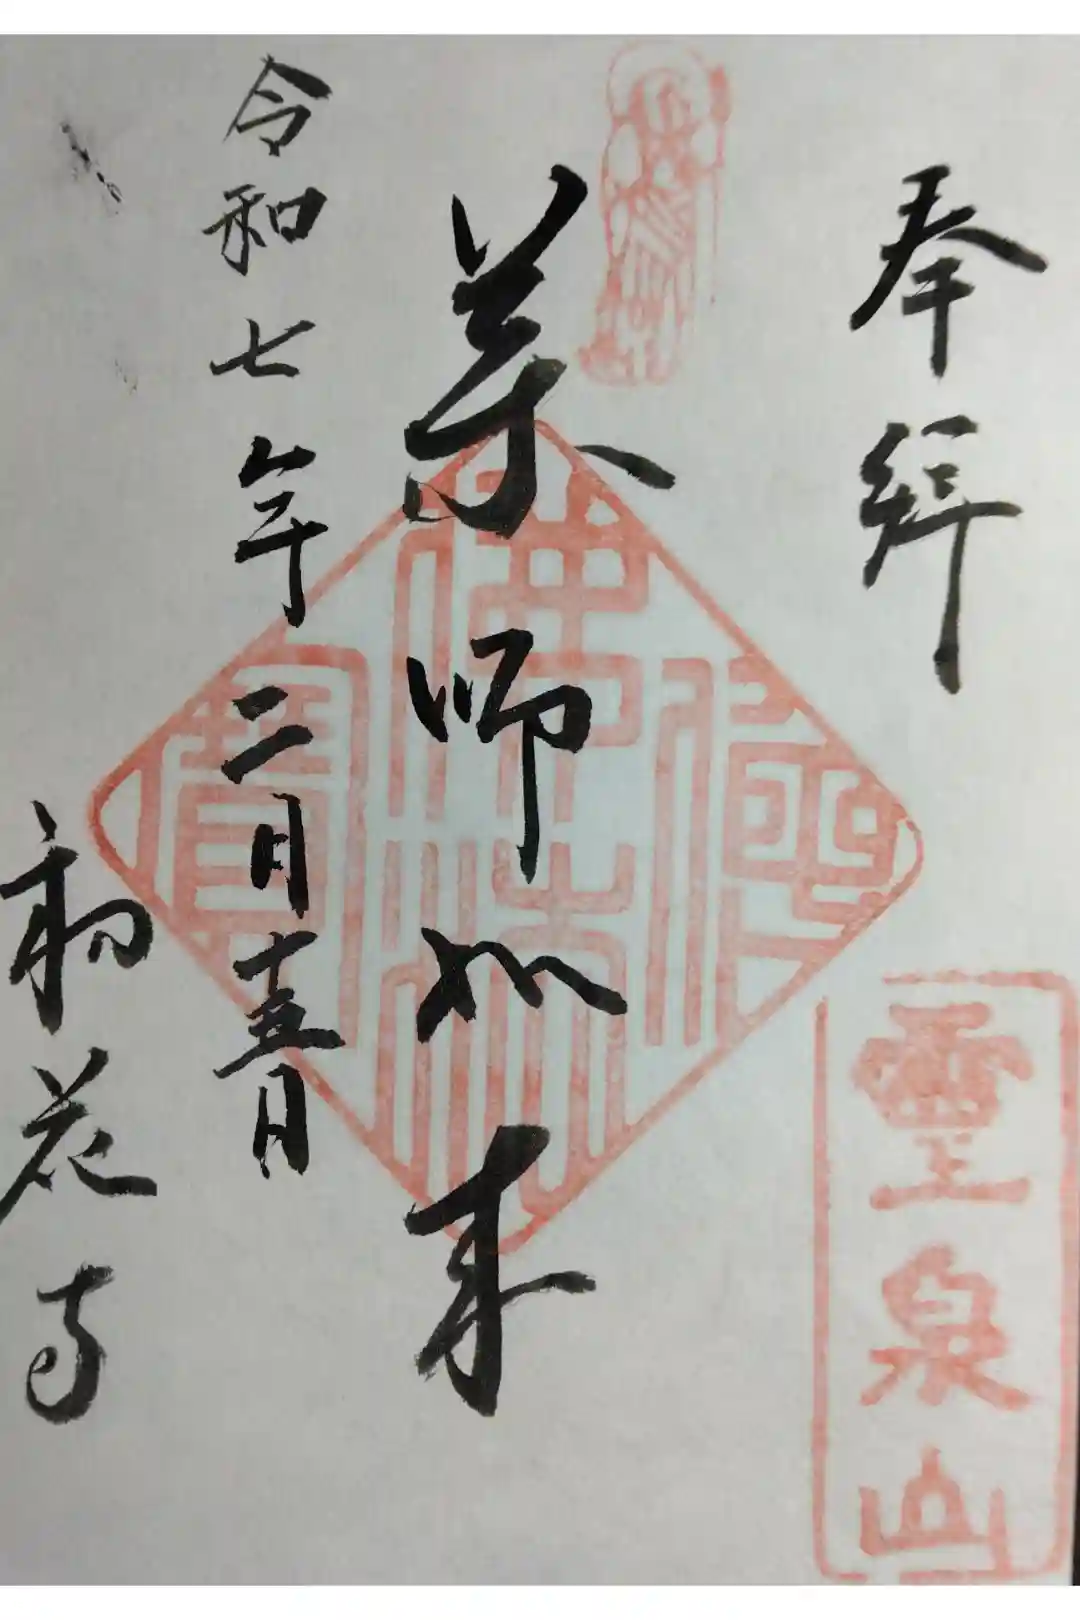 奉拝
霊泉山
薬師如来
佛法僧寶
令和七年二月十五日
初花寺